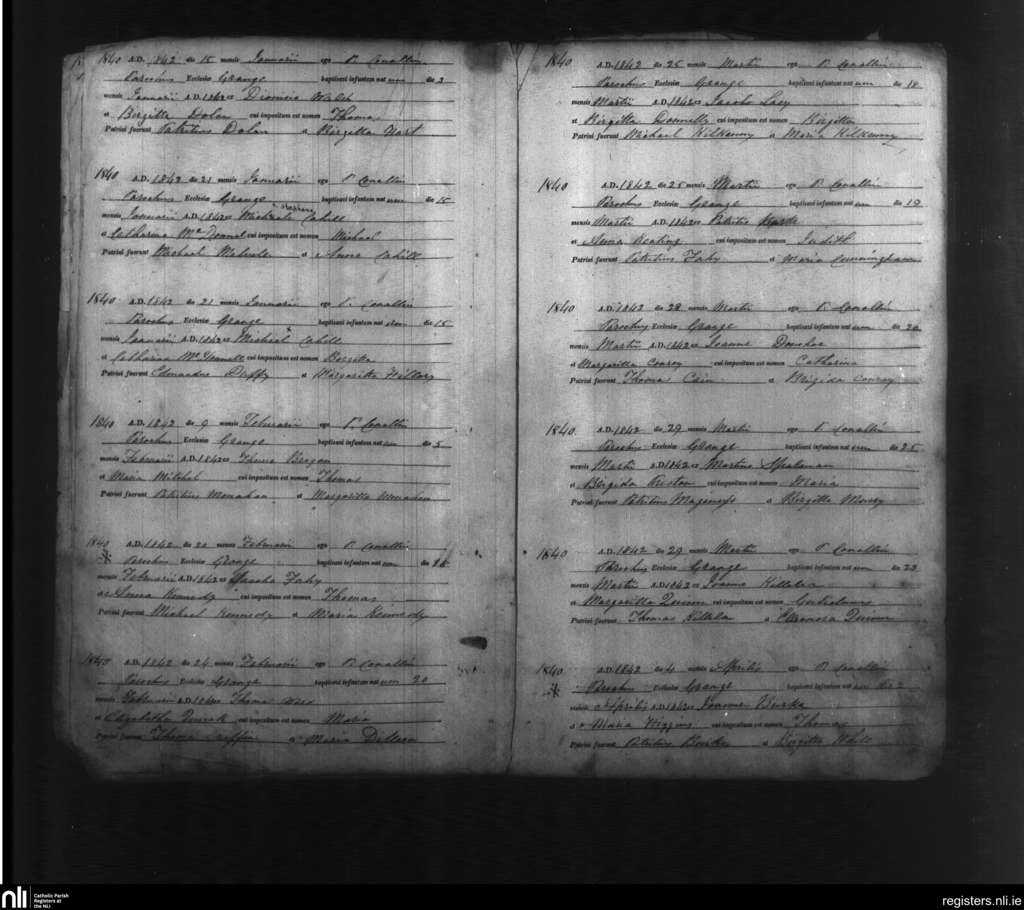 1840 A.D. 1842 die 15 mensis Januarii ego P. Conallin
Parochus Ecclesiæ Grange baptizavi infantem natum die 3
mensis Januarii A.D. 1842 ex Dionisio Walsh
et Birgitta Dolan cui impositum est nomen Thomas
Patrini fuerunt Patritius Dolan et Birgitta Hart
1840 A.D. 1842 die 21 mensis Januarii ego P. Conallin
Parochus Ecclesiæ Grange baptizavi infantem natum die 15
mensis Januarii A.D. 1842 ex Michaele Cahill
et Catharina Mc cui impositum est nomen Michael
Patrini fuerunt Michael et Anna Cahill
1840 A.D. 1842 die 21 mensis Januarii ego P. Conallin
Parochus Ecclesiæ Grange baptizavi infantem natum die 15
mensis Januarii A.D. 1842 ex Michael Cahill
et Catharina Mc cui impositum est nomen
Patrini fuerunt Edmundus Duffy et Margaritta
1840 A.D. 1842 die 9 mensis Februarii ego P. Conallin
Parochus Ecclesiæ Grange baptizavi infantem natum die 5
mensis Februarii A.D. 1842 ex Thoma
et Maria Mitchel cui impositum est nomen Thomas
Patrini fuerunt Patritius Monahan et Margaritta Monahan
1840 A.D. 1842 die 20 mensis Februarii ego P. Conallin
Parochus Ecclesiæ Grange baptizavi infantem natum die
mensis Februarii A.D. 1842 ex Fahy
et Anna Kennedy cui impositum est nomen Thomas
Patrini fuerunt Michael Kennedy et Maria Kennedy
1840 A.D. 1842 die 24 mensis Februarii ego P. Conallin
Parochus Ecclesiæ Grange baptizavi infantem natum 20
mensis Februarii A.D. 1842 ex Thoma
et Elizabetha cui impositum est nomen Maria
Patrini fuerunt Thoma Griffin et Maria
1840 A.D. 1842 die 25 mensis Martii ego P. Conallin
Parochus Ecclesiæ Grange baptizavi infantem natum die 18
mensis Martii A.D. 1842 ex Jacobo Lacy
et Birgitta Donnelly cui impositum est nomen Birgitta
Patrini fuerunt Michael Kilkenny et Maria Kilkenny
1840 A.D. 1842 die 25 mensis Martii ego P. Conallin
Parochus Ecclesiæ Grange baptizavi infantem natum die 19
mensis Martii A.D. 1842 ex Patritio
et Anna Keating cui impositum est nomen Judith
Patrini fuerunt Patritius Fahy et Maria Cunningham
1840 A.D. 1842 die 28 mensis Martii ego P. Conallin
Parochus Ecclesiæ Grange baptizavi infantem natum die 20
mensis Martii A.D. 1842 ex Joanne Donohoe
et Margaritta Conroy cui impositum est nomen Catharina
Patrini fuerunt Thomas Cain et Brigida Conroy
1840 A.D. 1842 die 29 mensis Martii ego P. Conallin
Parochus Ecclesiæ Grange baptizavi infantem natum die 25
mensis Martii A.D. 1842 ex Martino Spelman
et Birgida cui impositum est nomen Maria
Patrini fuerunt Patritius et Birgitta Morry
1840 A.D. 1842 die 29 mensis Martii ego P. Conallin
Parochus Ecclesiæ Grange baptizavi infantem natum die 23
mensis Martii A.D. 1842 ex Joanne Killelea
et Margaritta Quinn cui impositum est nomen
Patrini fuerunt Thomas Killelea et Eleonora Quinn
1840 A.D. 1842 die 4 mensis Aprilis ego P. Conallin
Parochus Ecclesiæ Grange baptizavi infantem natum die 2
mensis Aprilis A.D. 1842 ex Joanne Burke
et Maria Higgins cui impositum est nomen Thomas
Patrini fuerunt Patritius Bourke et Birgitta
nli Catholic Parish Registers at the NLI
registers.nli.ie